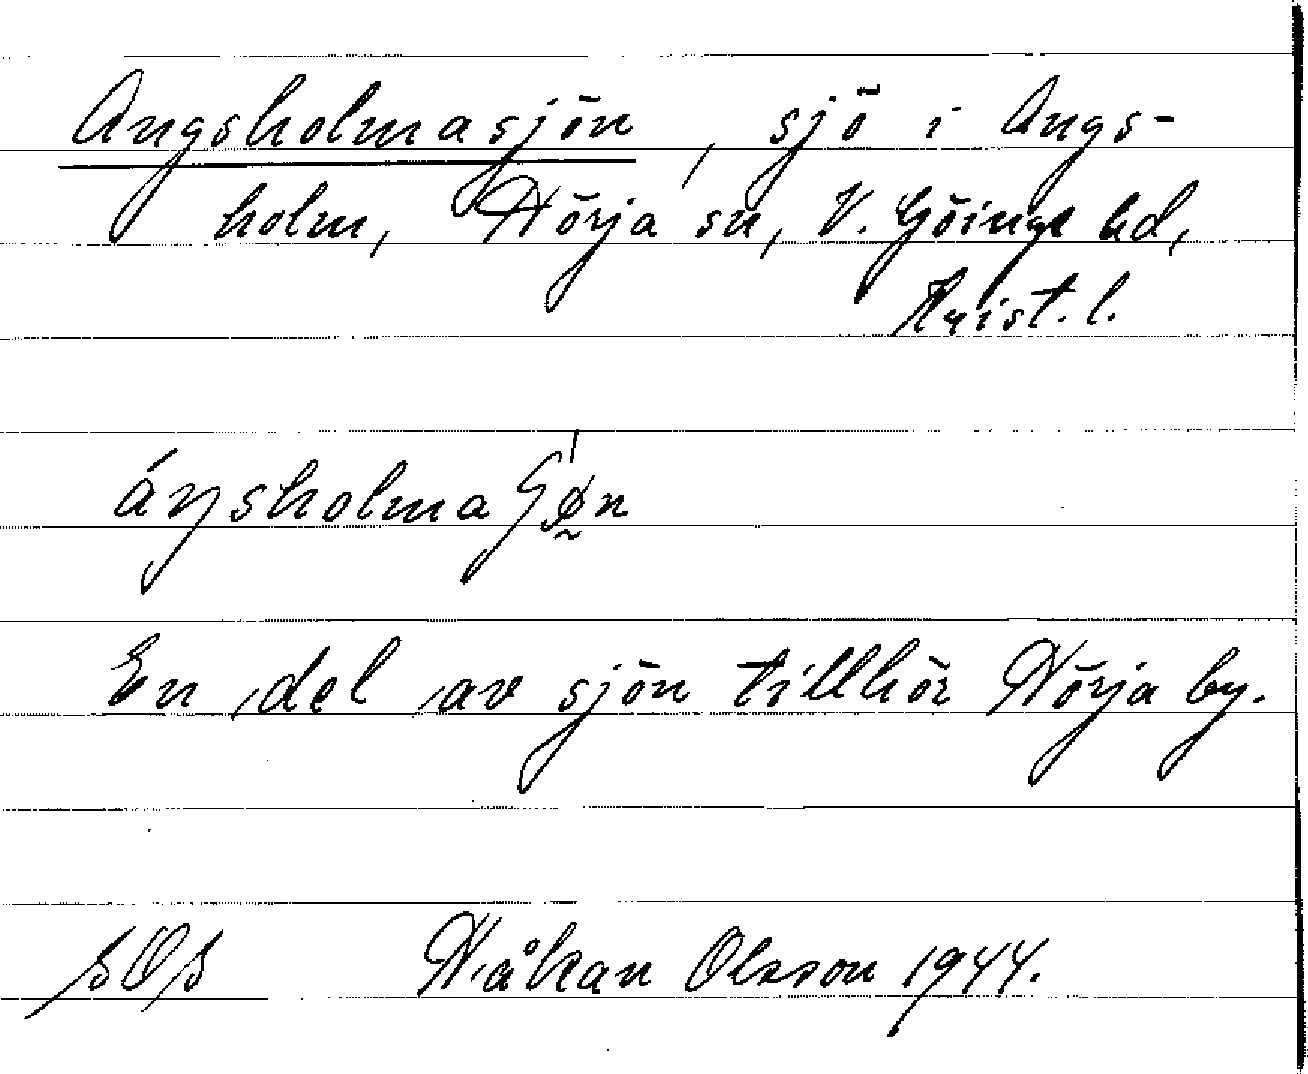 Angsholmasjön, sjö i Angs-
holm, Nörja sn, V. Göinge hd,
Krist. l.
En del av sjön tillhör Nörja by.
SOS Håkan Olsson 1944.